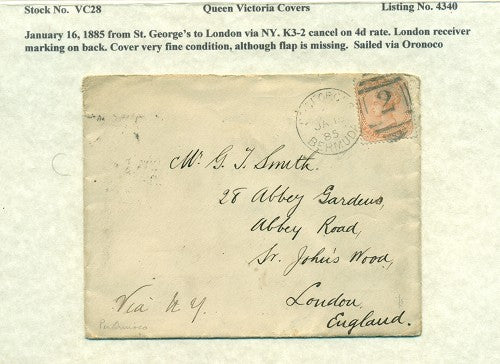 Stock No. VC28 Queen Victoria Covers Listing No. 4340
January 16, 1885 from St. George's to London via NY. K3-2 cancel on 4d rate. London receiver
marking on back. Cover very fine condition, although flap is missing. Sailed via Oronoco
JA
85
BERMUDA
2
Mr. G. T. Smith.
28 Abbey Gardens,
Abbey Road,
St. John's Wood,
London,
England.
Via N.Y.